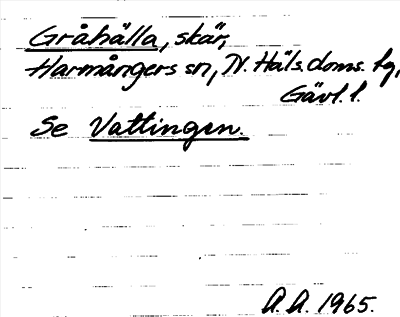 Gråhälla, skär,
Harmångers sn, N. Häls. doms. tg,
Gävl. l.
Se Vattingen.
A. A. 1965.